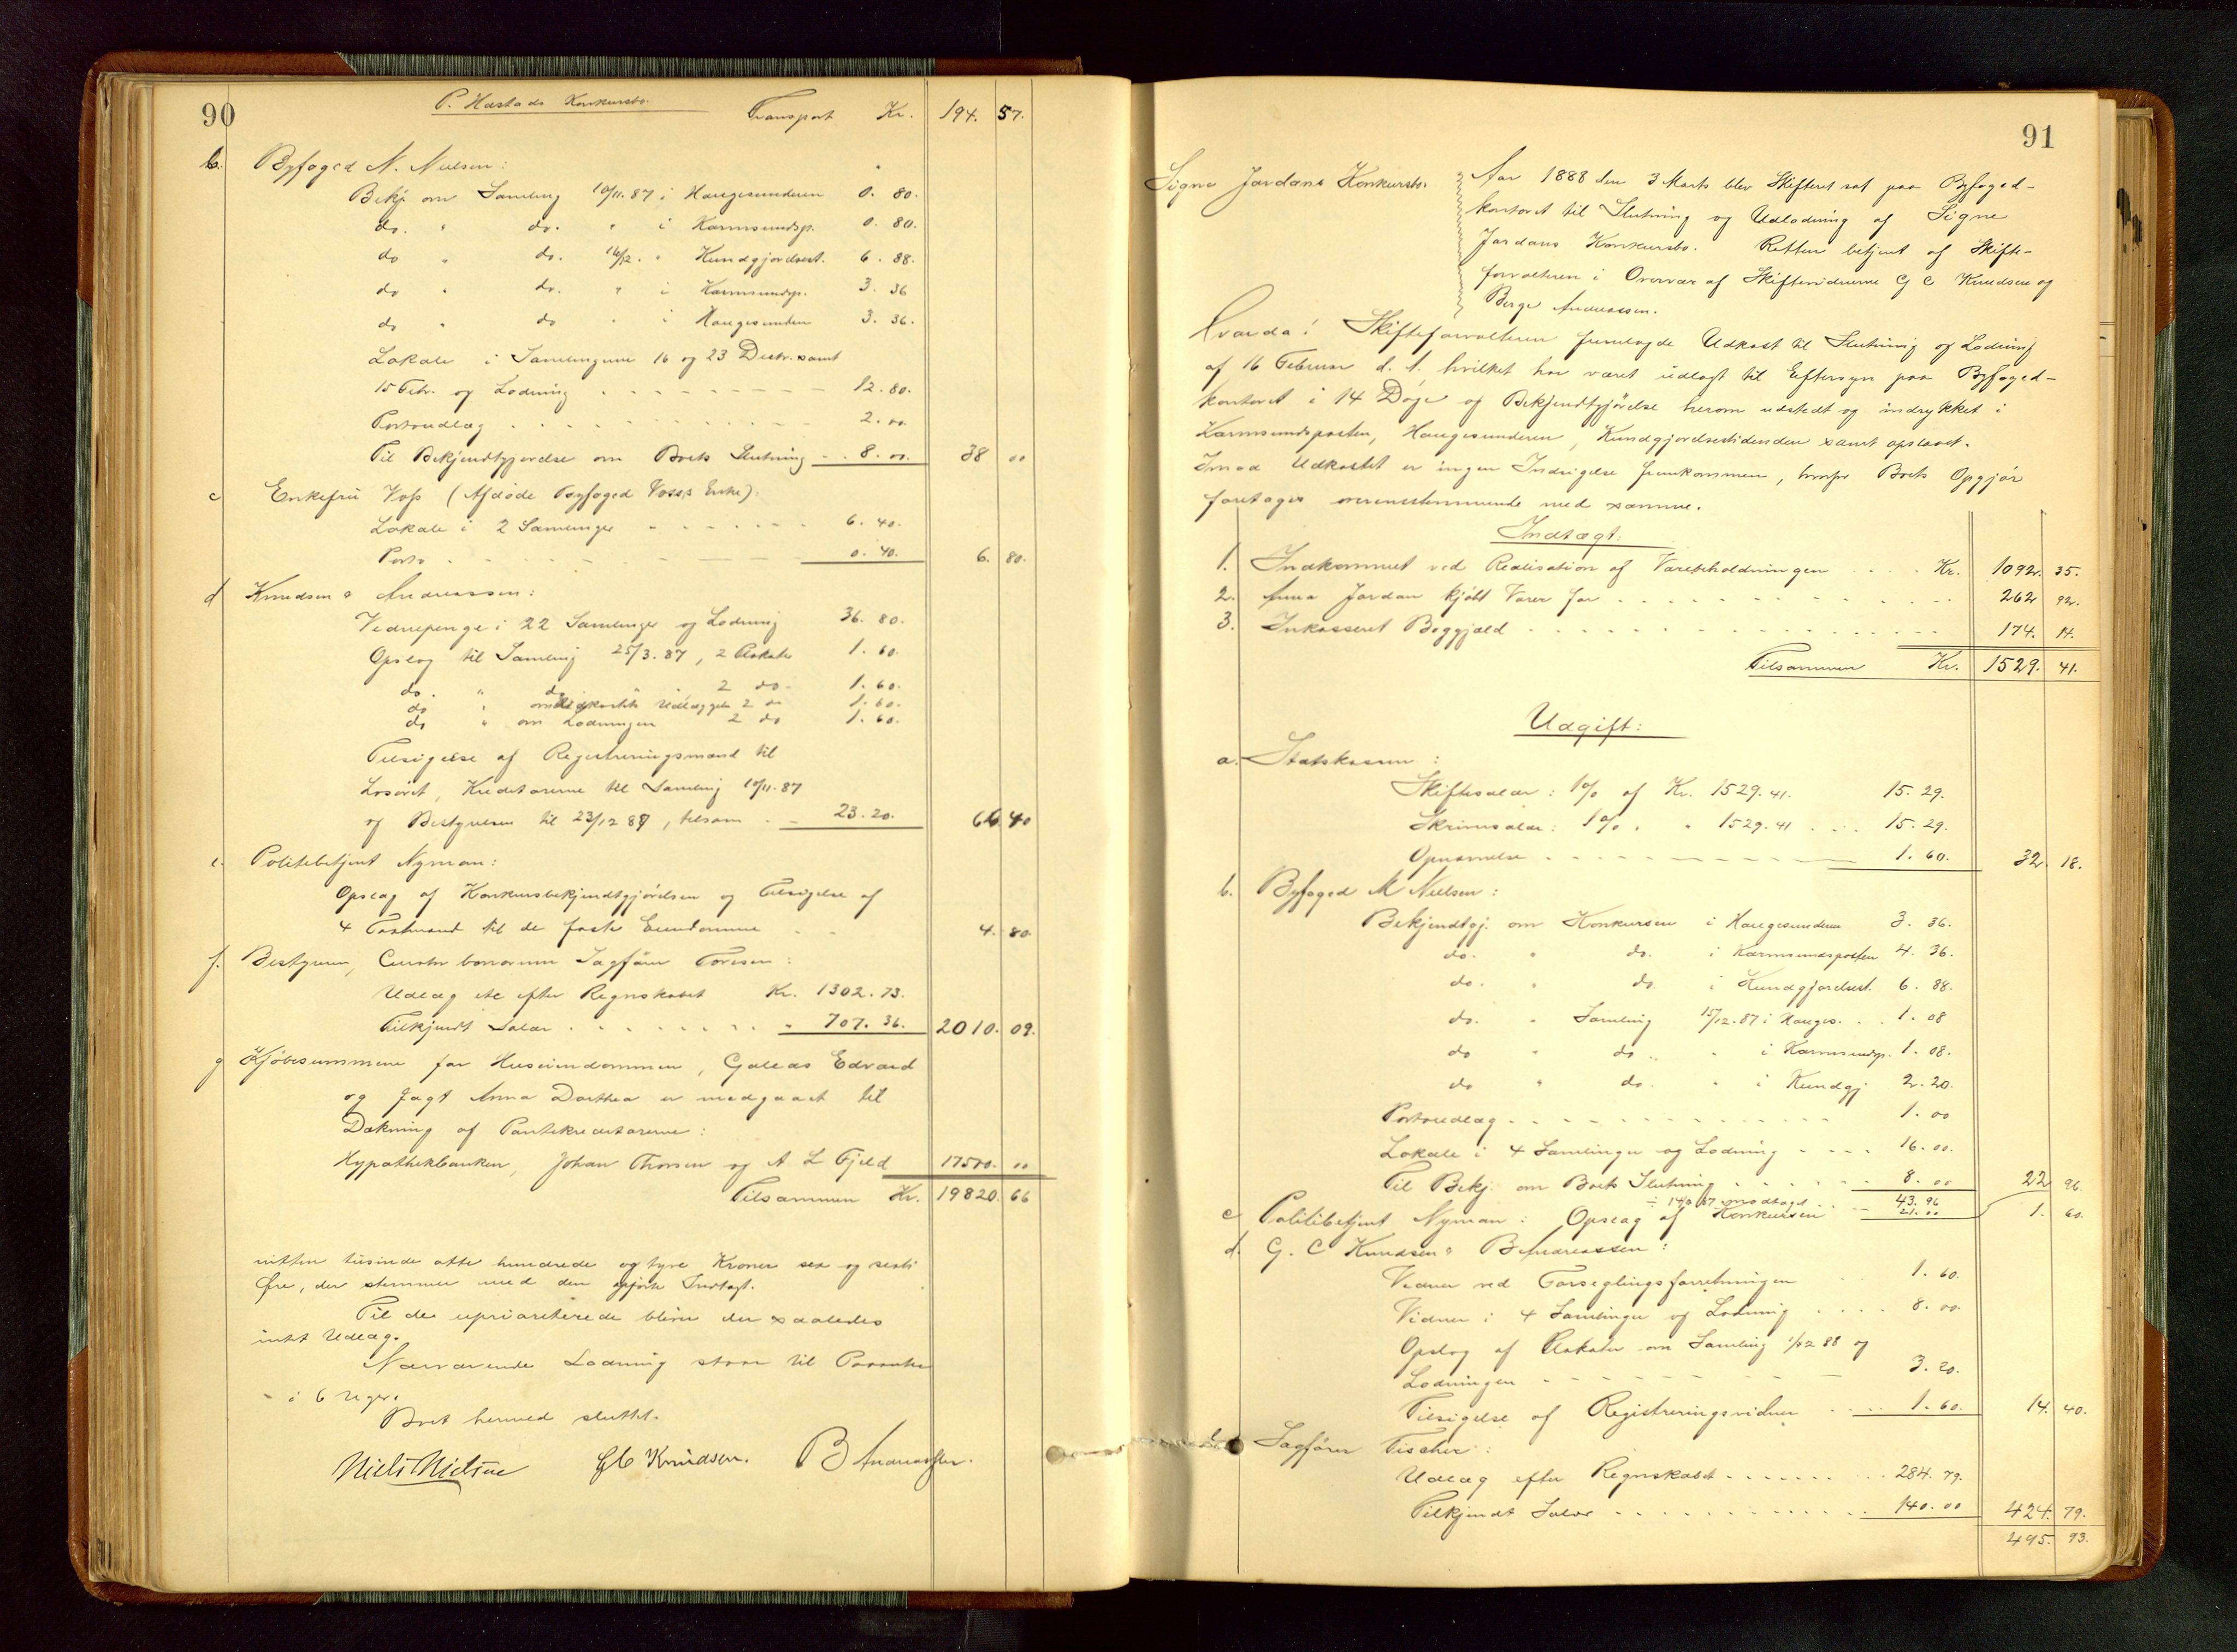 90
P. Hæstads Konkursbo.
Transport Kr. 194. 57.
b. Byfoged N. Nielsen:
Bekj. om Samling 10/11. 87 i Haugesunderen 0. 80.
do. " do. " i Karmsundsp. 0. 80.
do " do. 16/12. " Kundgjørelsest. 6. 88.
do " do. " i Karmsundsp. 3. 36
do " do " i Haugesunderen 3. 36.
Lokale i Samlingerne 16 og 23 Decbr. samt
15 Febr. og Lodning 12. 80.
Portoudlæg 2. 00
Til Bekjendtgjørelse om Boets Slutning 8. 00. 38 00
c Enkefru Voss (Afdøde Byfoged Voss's Enke).
Lokale i 2 Samlinger 6. 40.
Porto 0. 40. 6. 80.
d Knudsen & Andreassen:
Vidnepenge i 22 Samlinger og Lodning 36. 80.
Opslag til Samling 25/3. 87, 2 Plakater 1. 60.
do. " do " 2 do. 1. 60.
do " om Udkastets Udlæggelse 2 do 1. 60.
do " om Lodningen 2 do 1. 60.
Tilsigelse af Registreringsmænd til
Løsøret, Kreditorerne til Samling 10/11. 87
og Bestyrelsen til 23/12 87, tilsam. 23. 20. 66. 40
e. Politibetjent Nyman:
Opslag af Konkursbekjendtgjørelsen og Tilsigelse af
4 Taxtmænd til de faste Eiendomme 4. 80.
f. Bestyrer, Curator bonorum Sagfører Toresen:
Udlæg etc efter Regnskabet Kr. 1302. 73.
Tilkjendt Salær " 707. 36. 2010. 09.
g Kjøbesummene for Huseiendommen, Galeas Edvard
og Jagt Anna Dorthea er medgaaet til
Dækning af Pantekreditorerne:
Hypothekbanken, Johan Thorsen og A L Fjeld 17500. 00
Tilsammen Kr. 19820. 66
nitten tusinde otte hundrede og tyve Kroner sex og sexti
Øre, der stemmer med den opførte Indtægt.
Til de uprioriterede bliver der saaledes
intet Udlæg.
Nærværende Lodning staar til Paaanke
i 6 Uger.
Boet hermed sluttet.
Niels Nielsen GC Knudsen. B Andreassen.
91
Signe Jordans Konkursbo.
Aar 1888 den 3 Marts blev Skifteret sat paa Byfoged-
kontoret til Slutning og Udlodning af Signe
Jordans Konkursbo. Retten betjent af Skifte-
forvalteren i Overvær af Skiftevidnerne G C Knudsen og
Berge Andreassen.
Hvorda! Skifteforvalteren fremlagde Udkast til Slutning og Lodning
af 16 Februar d. A. hvilket har været udlagt til Eftersyn paa Byfoged-
kontoret i 14 Dage og Bekjendtgjørelse herom udstedt og indrykket i
Karmsundsposten, Haugesunderen, Kundgjørelsestidenden samt opslaaet.
Imod Udkastet er ingen Indsigelse fremkommen, hvorfor Boets Opgjør
foretages overensstemmende med samme.
Indtægt:
1. Indkommet ved Realisation af Varebeholdningen Kr. 1092. 35.
2. Anna Jordan kjøbt Varer for 262 92.
3. Inkasseret Boggjæld 174. 14.
Tilsammen Kr. 1529. 41.
Udgift:
a. Statskassen:
Skiftesalær: 1% af Kr. 1529. 41. 15. 29.
Skriversalær: 1% " " 1529. 41 15. 29.
Opnævnelse 1. 60. 32. 18.
b. Byfoged N Nielsen:
Bekjendtgj. om Konkursen i Haugesunderen 3. 36.
do. " do. i Karmsundsposten 4. 36.
do. " do. i Kundgjørelsest. 6. 88.
do. " Samling 15/12. 87 i Hauges. 1. 08
do " do " i Karmsundsp. 1. 08.
do " do. " i Kundgj 2. 20.
Portoudlæg 1. 00
Lokale i 4 Samlinger og Lodning 16. 00.
Til Bekj. om Boets Slutning 8. 00 22 96
43. 96
÷ 14/9 87 modtaget 21. 00
c Politibetjent Nyman: Opslag af Konkursen 1. 60.
d. G. C Knudsen & B Andreassen:
Vidner ved Forseglingsforretningen 1. 60.
Vidner i 4 Samlinger og Lodning 8. 00.
Opslag af Plakater om Samling 1/12 88 og
Lodningen 3. 20.
Tilsigelse af Registreringsvidner 1. 60. 14. 40.
Sagfører Fischer:
Udlæg efter Regnskabet 284. 79.
Tilkjendt Salær 140. 00 424. 79.
495. 93.